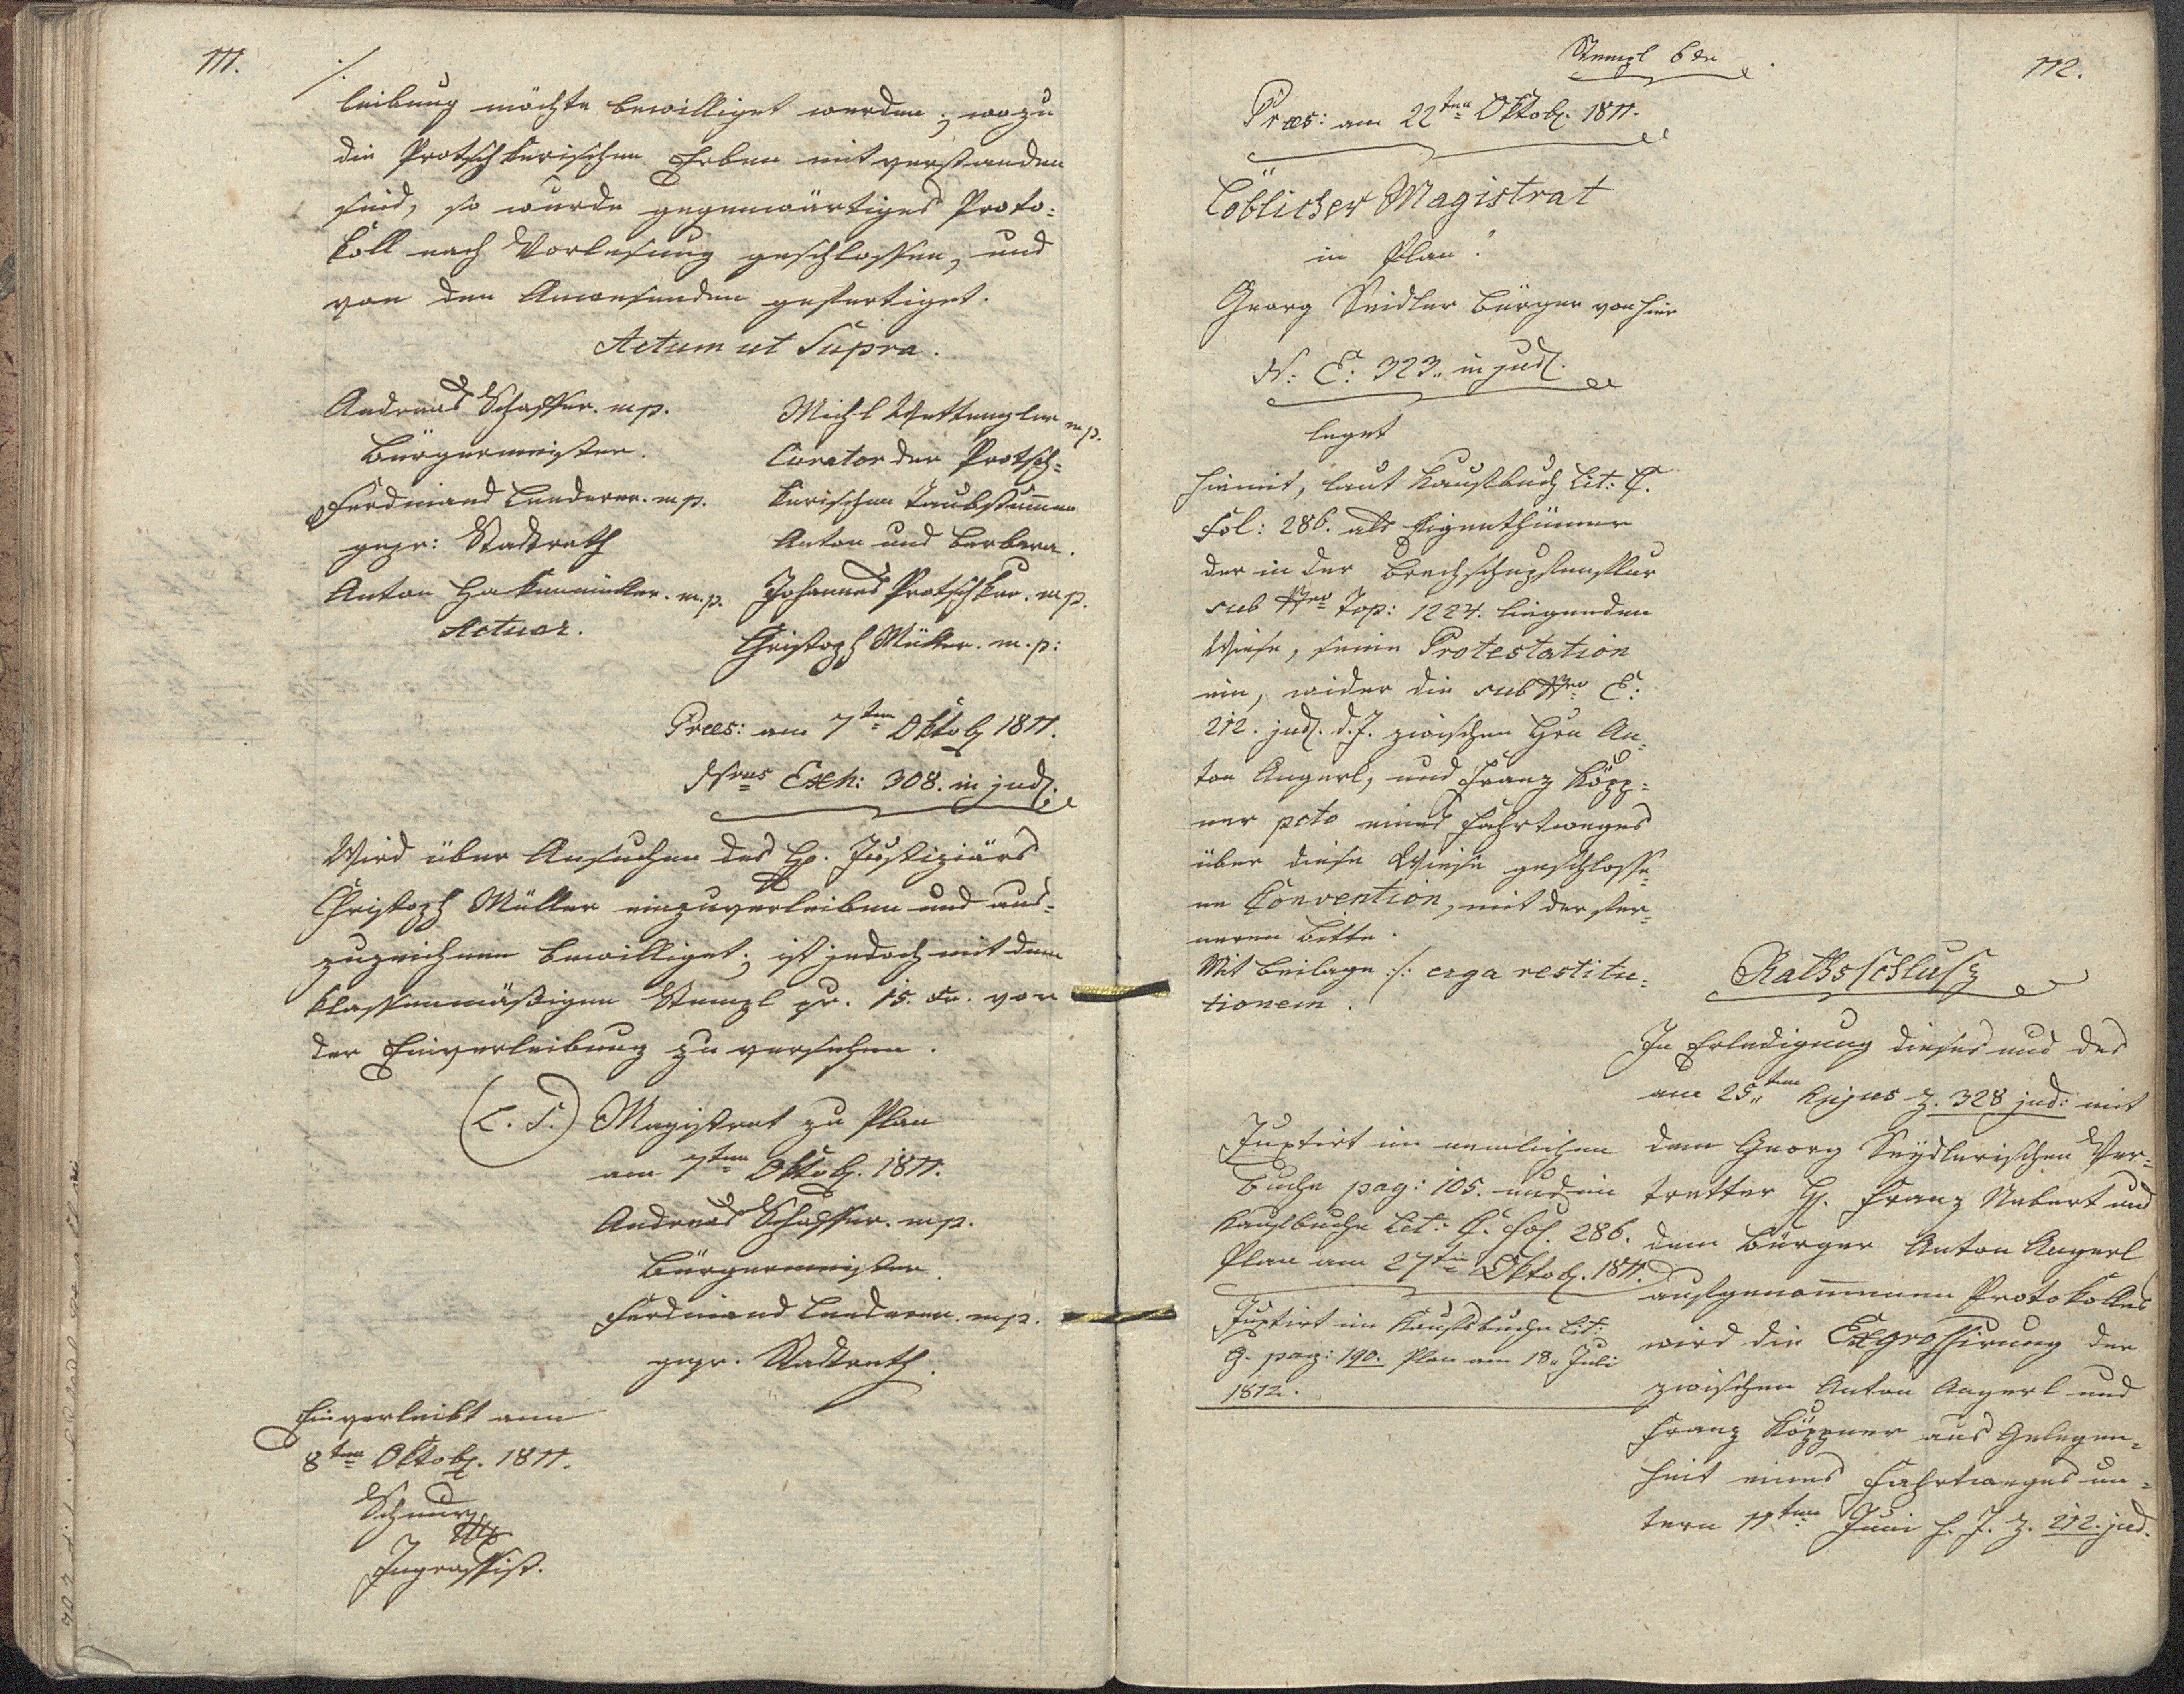 111.
./.
leibung möchte bewilliget werden; wozu
die Protschkerischen Erben mitverstanden
sind, so wurde gegenwärtiges Proto=
koll nach Vorlesung geschlossen, und
von den Anwesenden gefertiget.
Actum ut Supra.
Andreas Schaffer. mp.
Bürgermeister.
Ferdinand Lenderer. mp.
gepr: Stadtrath
Anton Hakenmüller. m.p.
Actuar.
Michl Wettengler mp.
Curator der Protsch=
kerischen Taubstummen
Anton und Barbara.
Johannes Protschker. mp.
Christoph Müller. m.p:
Præs: am 7ten Oktob 1811.
Nrus Exh: 308. in jud.
Wird über Ansuchen des H. Justiziärs
Christoph Müller einzuverleiben und aus=
zuzeichnen bewilliget; ist jedoch mit dem
klassenmäßigen Stempl pr. 15. xr. vor
der Einverleibung zu versehen.
(L. S.) Magistrat zu Plan
am 7ten Oktob. 1811.
Andreas Schaffer. mp.
Bürgermeister.
Ferdinand Lenderer. mp.
gepr. Stadtrath.
Einverleibt am
8ten Oktob. 1811.
Schnurz
Ingrossist.
112.
Stempl 6 xr
Præs: am 22ten Oktob. 1811.
Löblicher Magistrat
in Plan!
Georg Seidler Bürger von hier
N: E: 323. in jud.
leget
hiemit, laut Kaufbuch Lit: C.
Fol: 286. als Eigenthümer
der in der
sub Nro Top: 1224. liegenden
Wiese, seine Protestation
ein, wider die sub Nro E:
212. jud. d. J. zwischen Hrn An=
ton Angerl, und Franz Köpp=
ner pcto eines Fahrtweges
über diese Wiese geschlosse=
ne Convention, mit der fer=
neren Bitte.
Mit Beilage ./. erga restitu=
tionem.
Juxtirt im nemlichen
Buche pag: 105. und im
Kaufbuche Lit: C. Fol. 286.
Plan am 27ten Oktob. 1811.
Juxtirt im Kaufsbuche Lit:
G. pag: 190. Plan am 18. Juli
1812.
Rathsschluß
In Erledigung dieses und des
am 25ten hujus Z. 328 jud: mit
dem Georg Seydlerischen Ver=
tretter H. Franz Nebert und
dem Bürger Anton Angerl
aufgenommenen Protokolles
wird die Exgrossirung der
zwischen Anton Angerl und
Franz Köppner aus Gelegen=
heit eines Fahrtweges un=
term 11ten Juni h. J. Z. 212. jud.